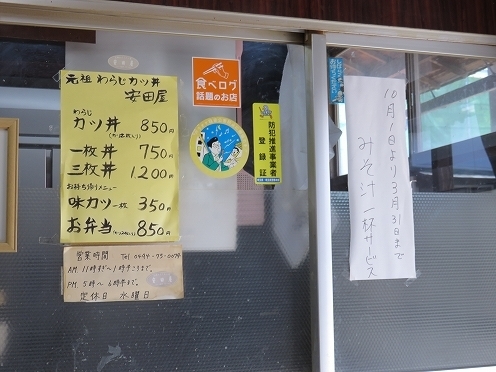 元祖 わらじカツ丼
安田屋
わらじ
カツ丼 850円
(かつ2枚入り)
一枚丼 750円
三枚丼 1,200円
お持ち帰りメニュー
味カツ 一枚 350円
お弁当 850円
営業時間 Tel 0494-75-0074
AM. 11時半~1時半ころまで。
PM. 5時~6時半まで。
定休日 水曜日
食べログ
話題のお店
防犯推進事業者
登録証
10月1日より3月31日まで
みそ汁一杯サービス